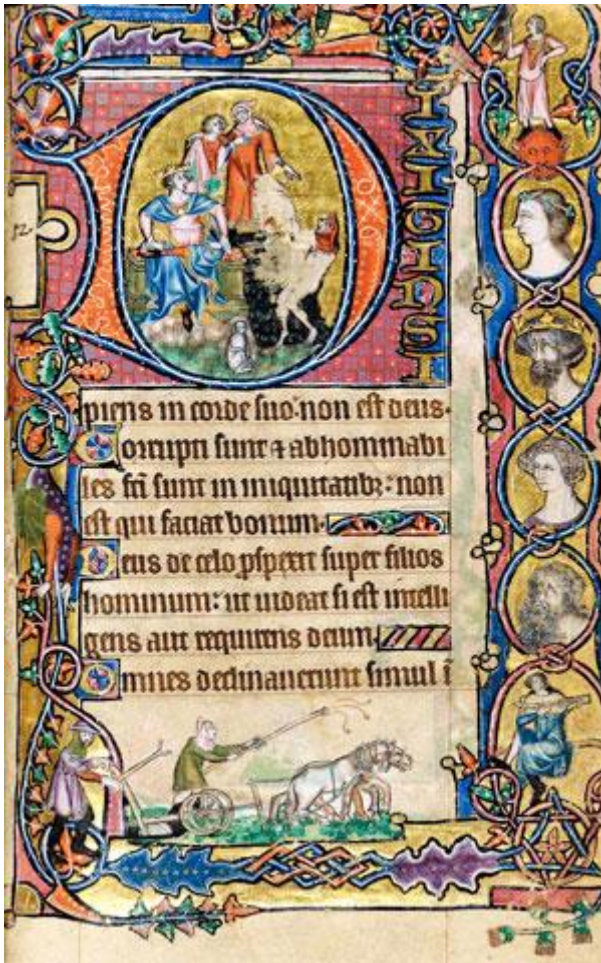 DIXIT INSI
piens in corde suo: non est deus.
Corrupti sunt ⁊ abhominabi
les fc̄i sunt in iniquitatibꝫ: non
est qui faciat bonum.
Deus de celo ꝓspexit super filios
hominum: ut uideat si est intelli
gens aut requirens deum.
Omnes declinauerunt simul ī